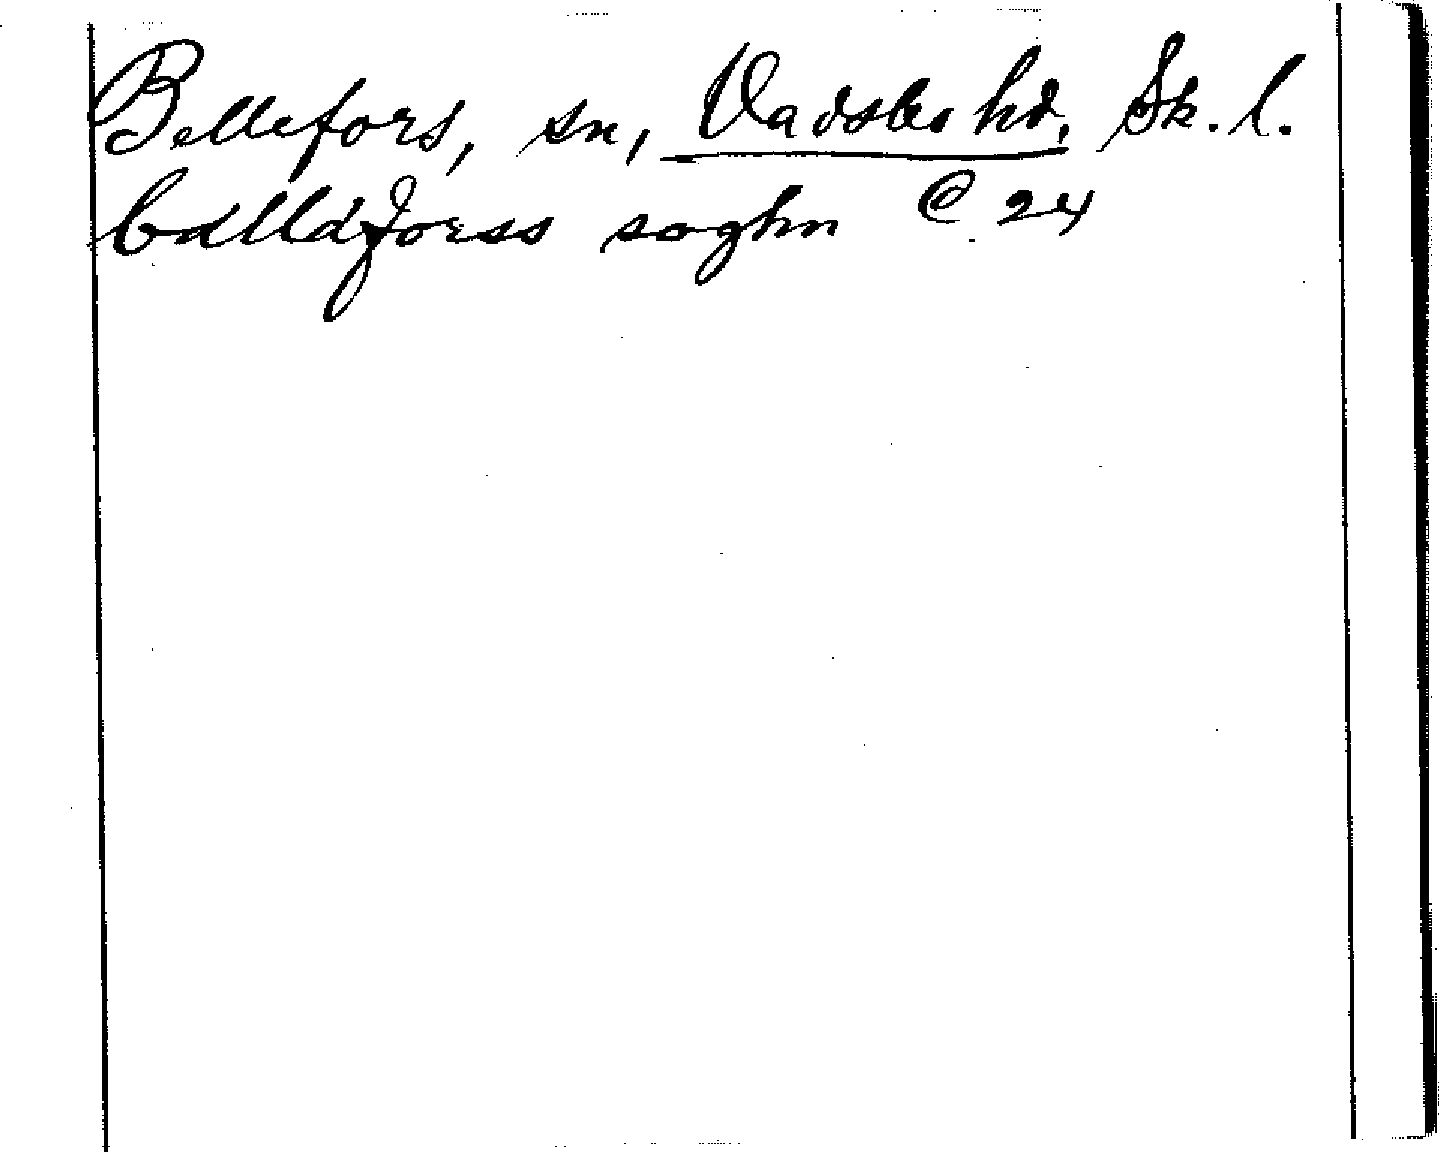 Bellefors, sn, Vadsbo hd, Sk. l.
bælldforss soghn C 24